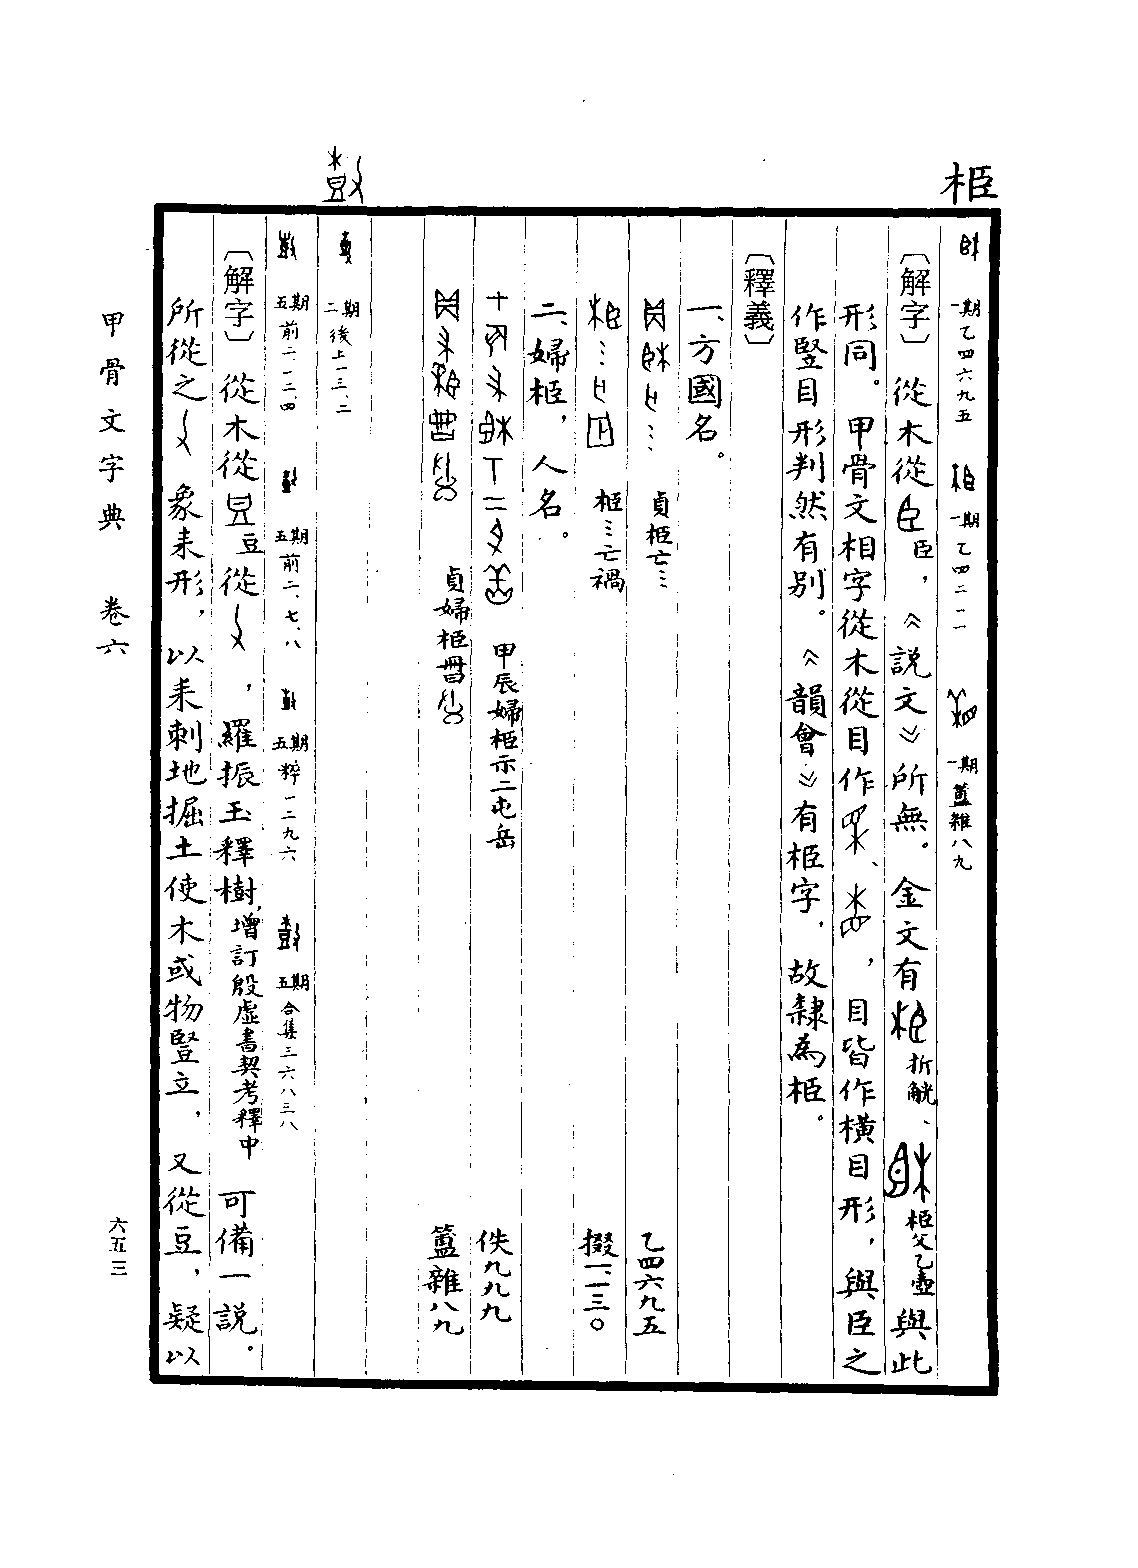 桓
一期乙四六九五 一期乙四二一一 一期簠雜八九
〔解字〕從木從臣,《説文》所無。金文有折觥、父乙壺與此
形同。甲骨文相字從木從目作、,目皆作橫目形,與臣之
作豎目形判然有別。《韻會》有字,故隸為。
〔釋義〕
一、方國名。
貞亡… 乙四六九五
…亡禍 掇一、一三〇
二、婦,人名。
甲辰婦示二屯岳 佚九九九
貞婦 簠雜八九
二期後上一三、二
五期前二、一二、四 五期前二、七、八 五期粹一二九六 五期合集三六八三八
〔解字〕從木從豆從,羅振玉釋樹,增訂殷虛書契考釋中 可備一説。
所從之象耒形,以耒刺地掘土使木或物豎立,又從豆,疑以
甲骨文字典 卷六
六五三